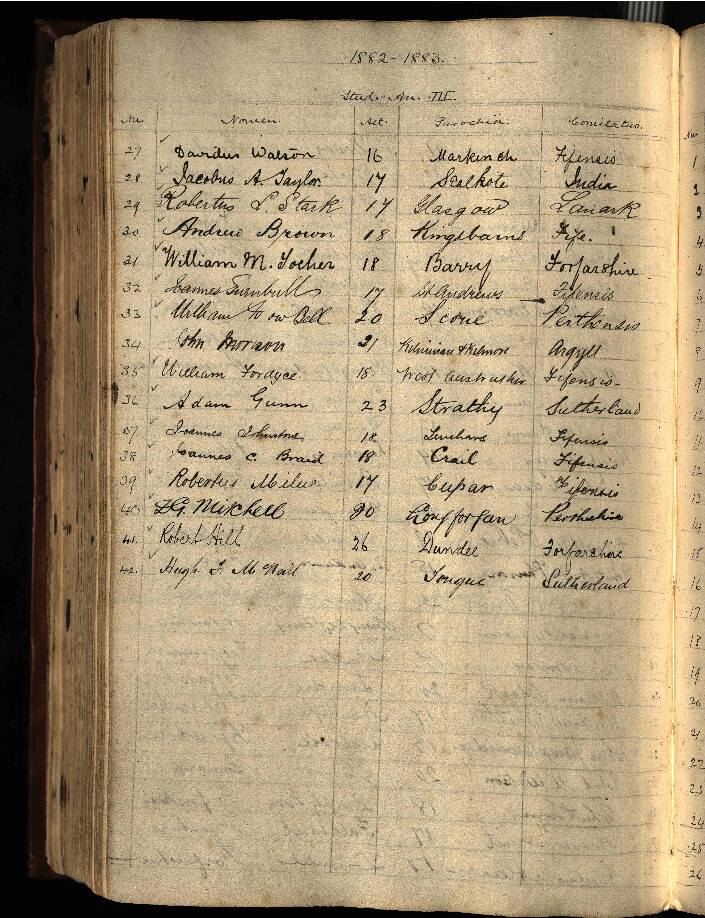 1882-1883.
Stud. An. III.
No. Nomen. Aet. Parochia. Comitatus. No.
27 Davidus Watson 16 Markinch Fifensis 1
28 Jacobus A. Taylor 17 Sealkote India 2
29 Robertus L. Stark 17 Glasgow Lanark 3
30 Andrew Brown 18 Kingsbarns Fife. 4
31 William M. Tocher 18 Barry Forfarshire 5
32 Joannes Turnbull 17 St Andrews Fifensis 6
33 William Bell 20 Scone Perthensis 7
34 John 21 Kilninian & Kilmore Argyll 8
35 William Fordyce 18 West Anstruther Fifensis. 9
36 Adam Gunn 23 Strathy Sutherland 10
37 Joannes Johnston 18 Leuchars Fifensis 11
38 Joannes C. Braid 18 Crail Fifensis 12
39 Robertus Milne 17 Cupar Fifensis 13
40 Mitchell 20 Longforgan Perthshire 14
41. Robert Hill 26 Dundee Forfarshire 15
42. Hugh F. McNab 20 Tongue Sutherland 16
17
18
19
20
21
22
23
24
25
26